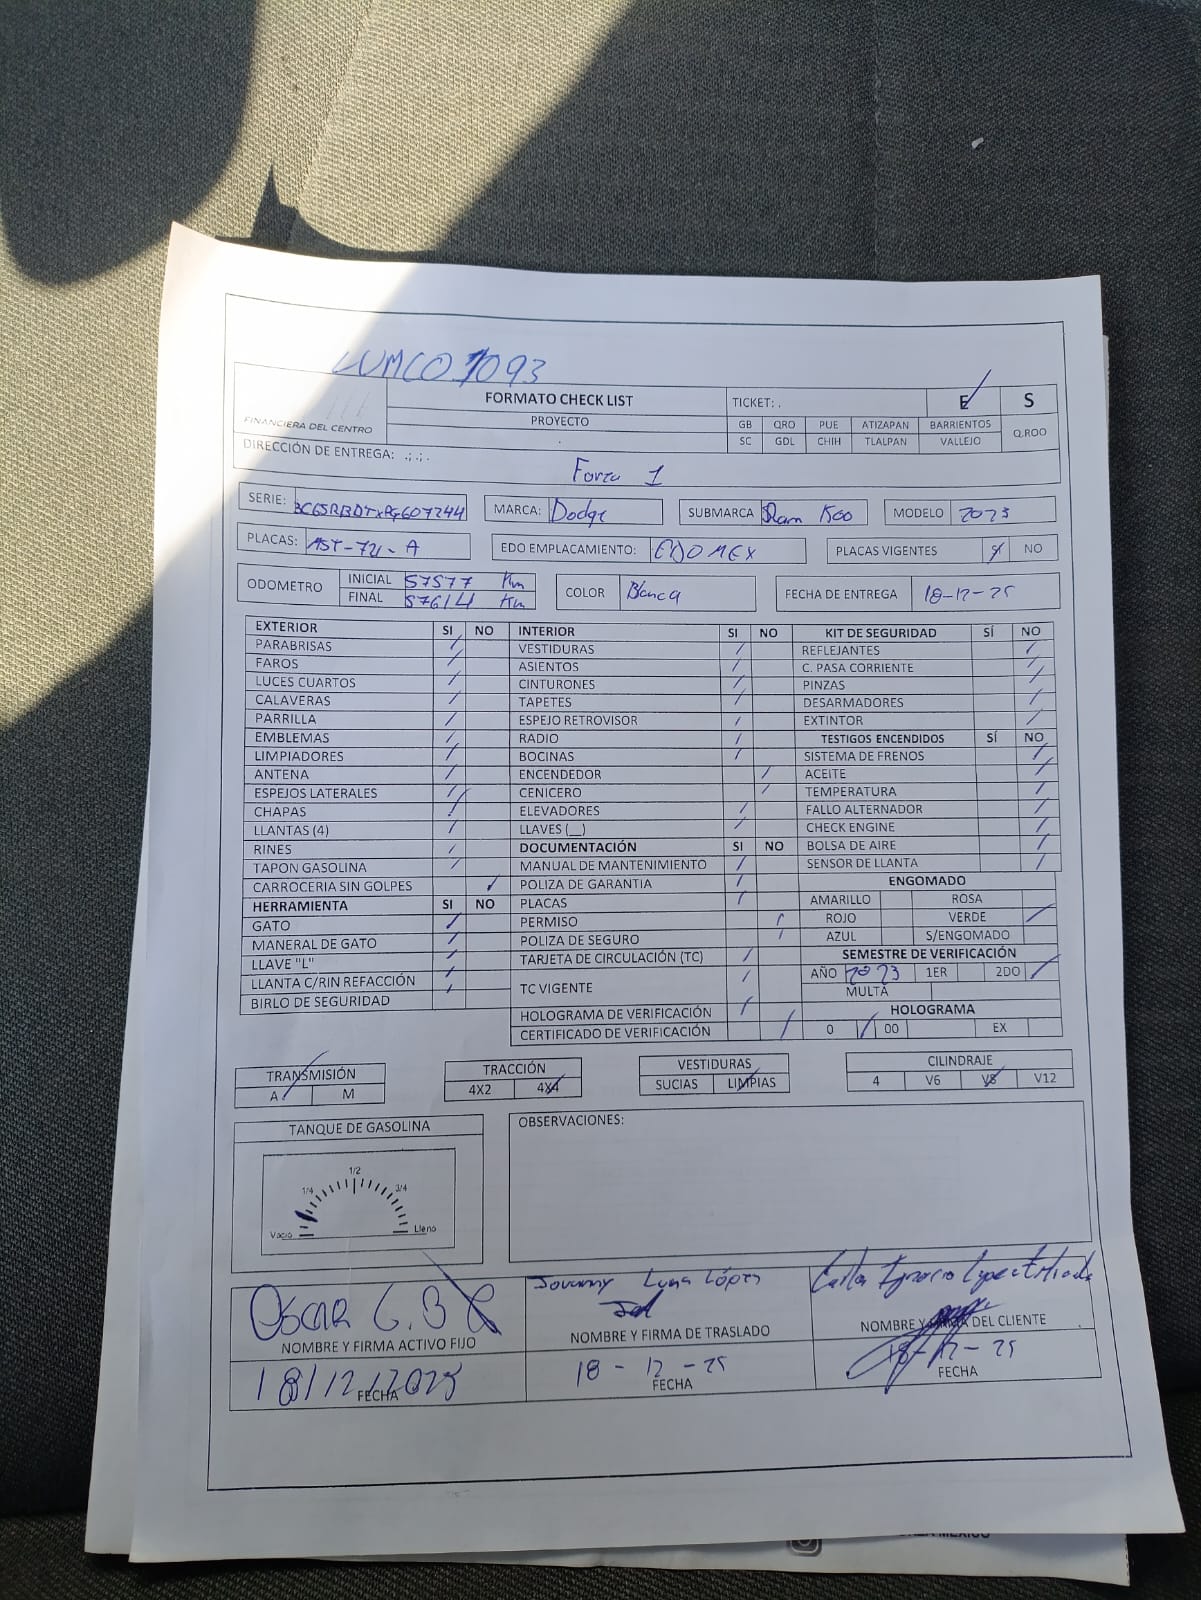 LUMCO 1093
FORMATO CHECK LIST TICKET: . E S
FINANCIERA DEL CENTRO PROYECTO GB QRO PUE ATIZAPAN BARRIENTOS Q.ROO
SC GDL CHIH TLALPAN VALLEJO
DIRECCIÓN DE ENTREGA: .; .; .
Forza 1
SERIE: 3C6SRBDTxPG607244 MARCA: Dodge SUBMARCA Ram MODELO 2023
PLACAS: EDO EMPLACAMIENTO: EDOMEX PLACAS VIGENTES NO
ODOMETRO INICIAL 57577 Km COLOR Blanca FECHA DE ENTREGA 18-12-25
FINAL 57614 Km
EXTERIOR SI NO INTERIOR SI NO KIT DE SEGURIDAD SÍ NO
PARABRISAS VESTIDURAS REFLEJANTES
FAROS ASIENTOS C. PASA CORRIENTE
LUCES CUARTOS CINTURONES PINZAS
CALAVERAS TAPETES DESARMADORES
PARRILLA ESPEJO RETROVISOR EXTINTOR
EMBLEMAS RADIO TESTIGOS ENCENDIDOS SÍ NO
LIMPIADORES BOCINAS SISTEMA DE FRENOS
ANTENA ENCENDEDOR ACEITE
ESPEJOS LATERALES CENICERO TEMPERATURA
CHAPAS ELEVADORES FALLO ALTERNADOR
LLANTAS (4) LLAVES (__) CHECK ENGINE
RINES DOCUMENTACIÓN SI NO BOLSA DE AIRE
TAPON GASOLINA MANUAL DE MANTENIMIENTO SENSOR DE LLANTA
CARROCERIA SIN GOLPES POLIZA DE GARANTIA ENGOMADO
HERRAMIENTA SI NO PLACAS AMARILLO ROSA
GATO PERMISO ROJO VERDE
MANERAL DE GATO POLIZA DE SEGURO AZUL S/ENGOMADO
LLAVE "L" TARJETA DE CIRCULACIÓN (TC) SEMESTRE DE VERIFICACIÓN
LLANTA C/RIN REFACCIÓN TC VIGENTE AÑO 2023 1ER 2DO
BIRLO DE SEGURIDAD MULTA
HOLOGRAMA DE VERIFICACIÓN HOLOGRAMA
CERTIFICADO DE VERIFICACIÓN 0 00 EX
TRANSMISIÓN TRACCIÓN VESTIDURAS CILINDRAJE
A M 4X2 4X4 SUCIAS LIMPIAS 4 V6 V8 V12
TANQUE DE GASOLINA OBSERVACIONES:
1/2
1/4 3/4
Vacio Lleno
OSCAR G.B Jovanny Luna López Carlos Ignacio
NOMBRE Y FIRMA ACTIVO FIJO NOMBRE Y FIRMA DE TRASLADO NOMBRE Y FIRMA DEL CLIENTE
18/12/2025 18-12-25 18-12-25
FECHA FECHA FECHA